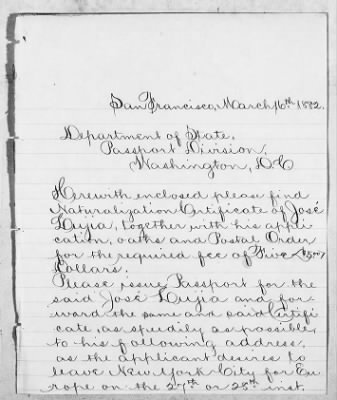 San Francisco, March 16th 1882.
Department of State,
Passport Division,
Washington, D.C
Herewith enclosed please find
Naturalization Certificate of José
Lujia, together with his appli
cation, oaths and Postal Order
for the required fee of Five
Dollars;
Please issue Passport for the
said José Lujia and for-
ward the same and said Certifi
cate, as speedily as possible,
to his following address,
as the applicant desires to
leave New York City for Eu
rope on the 27th or 28th inst.